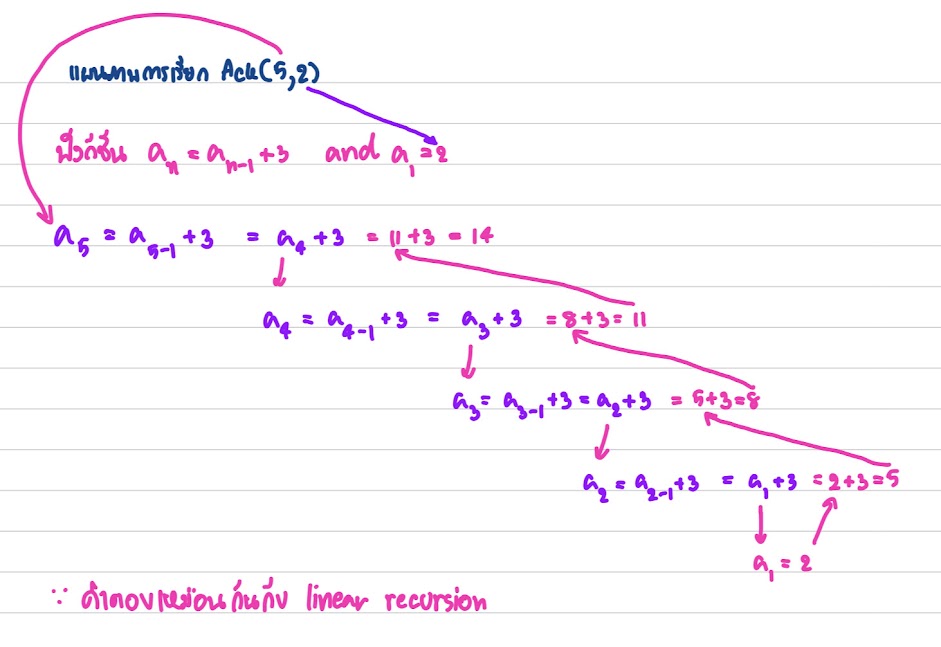 แผนภาพการเรียก Ack(5,2)
ฟังก์ชัน aₙ = aₙ₋₁ + 3 and a₁ = 2
a₅ = a₅₋₁ + 3 = a₄ + 3 = 11 + 3 = 14
a₄ = a₄₋₁ + 3 = a₃ + 3 = 8 + 3 = 11
a₃ = a₃₋₁ + 3 = a₂ + 3 = 5 + 3 = 8
a₂ = a₂₋₁ + 3 = a₁ + 3 = 2 + 3 = 5
a₁ = 2
∵ คำตอบเหมือนกันกับ linear recursion